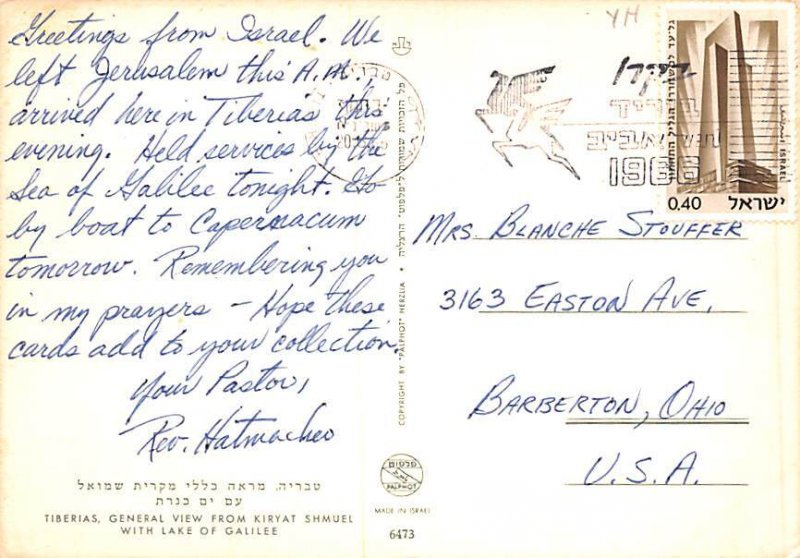 Greetings from Israel. We
left Jerusalem this A.M.
arrived here in Tiberias this
evening. Held services by the
Sea of Galilee tonight. Go
by boat to Capernacum
tomorrow. Remembering you
in my prayers - Hope these
cards add to your collection.
Your Pastor,
Rev. Hatmacher
טבריה. מראה כללי מקרית שמואל
עם ים כנרת
TIBERIAS, GENERAL VIEW FROM KIRYAT SHMUEL
WITH LAKE OF GALILEE
COPYRIGHT BY "PALPHOT" HERZLIA • כל הזכויות שמורות ל"פלפוט" הרצליה
פלפוט
PALPHOT
MADE IN ISRAEL
6473
YH
תל אביב
1966
0,40
ישראל
ISRAEL
MRS. BLANCHE STOUFFER
3163 EASTON AVE,
BARBERTON, OHIO
U.S.A.